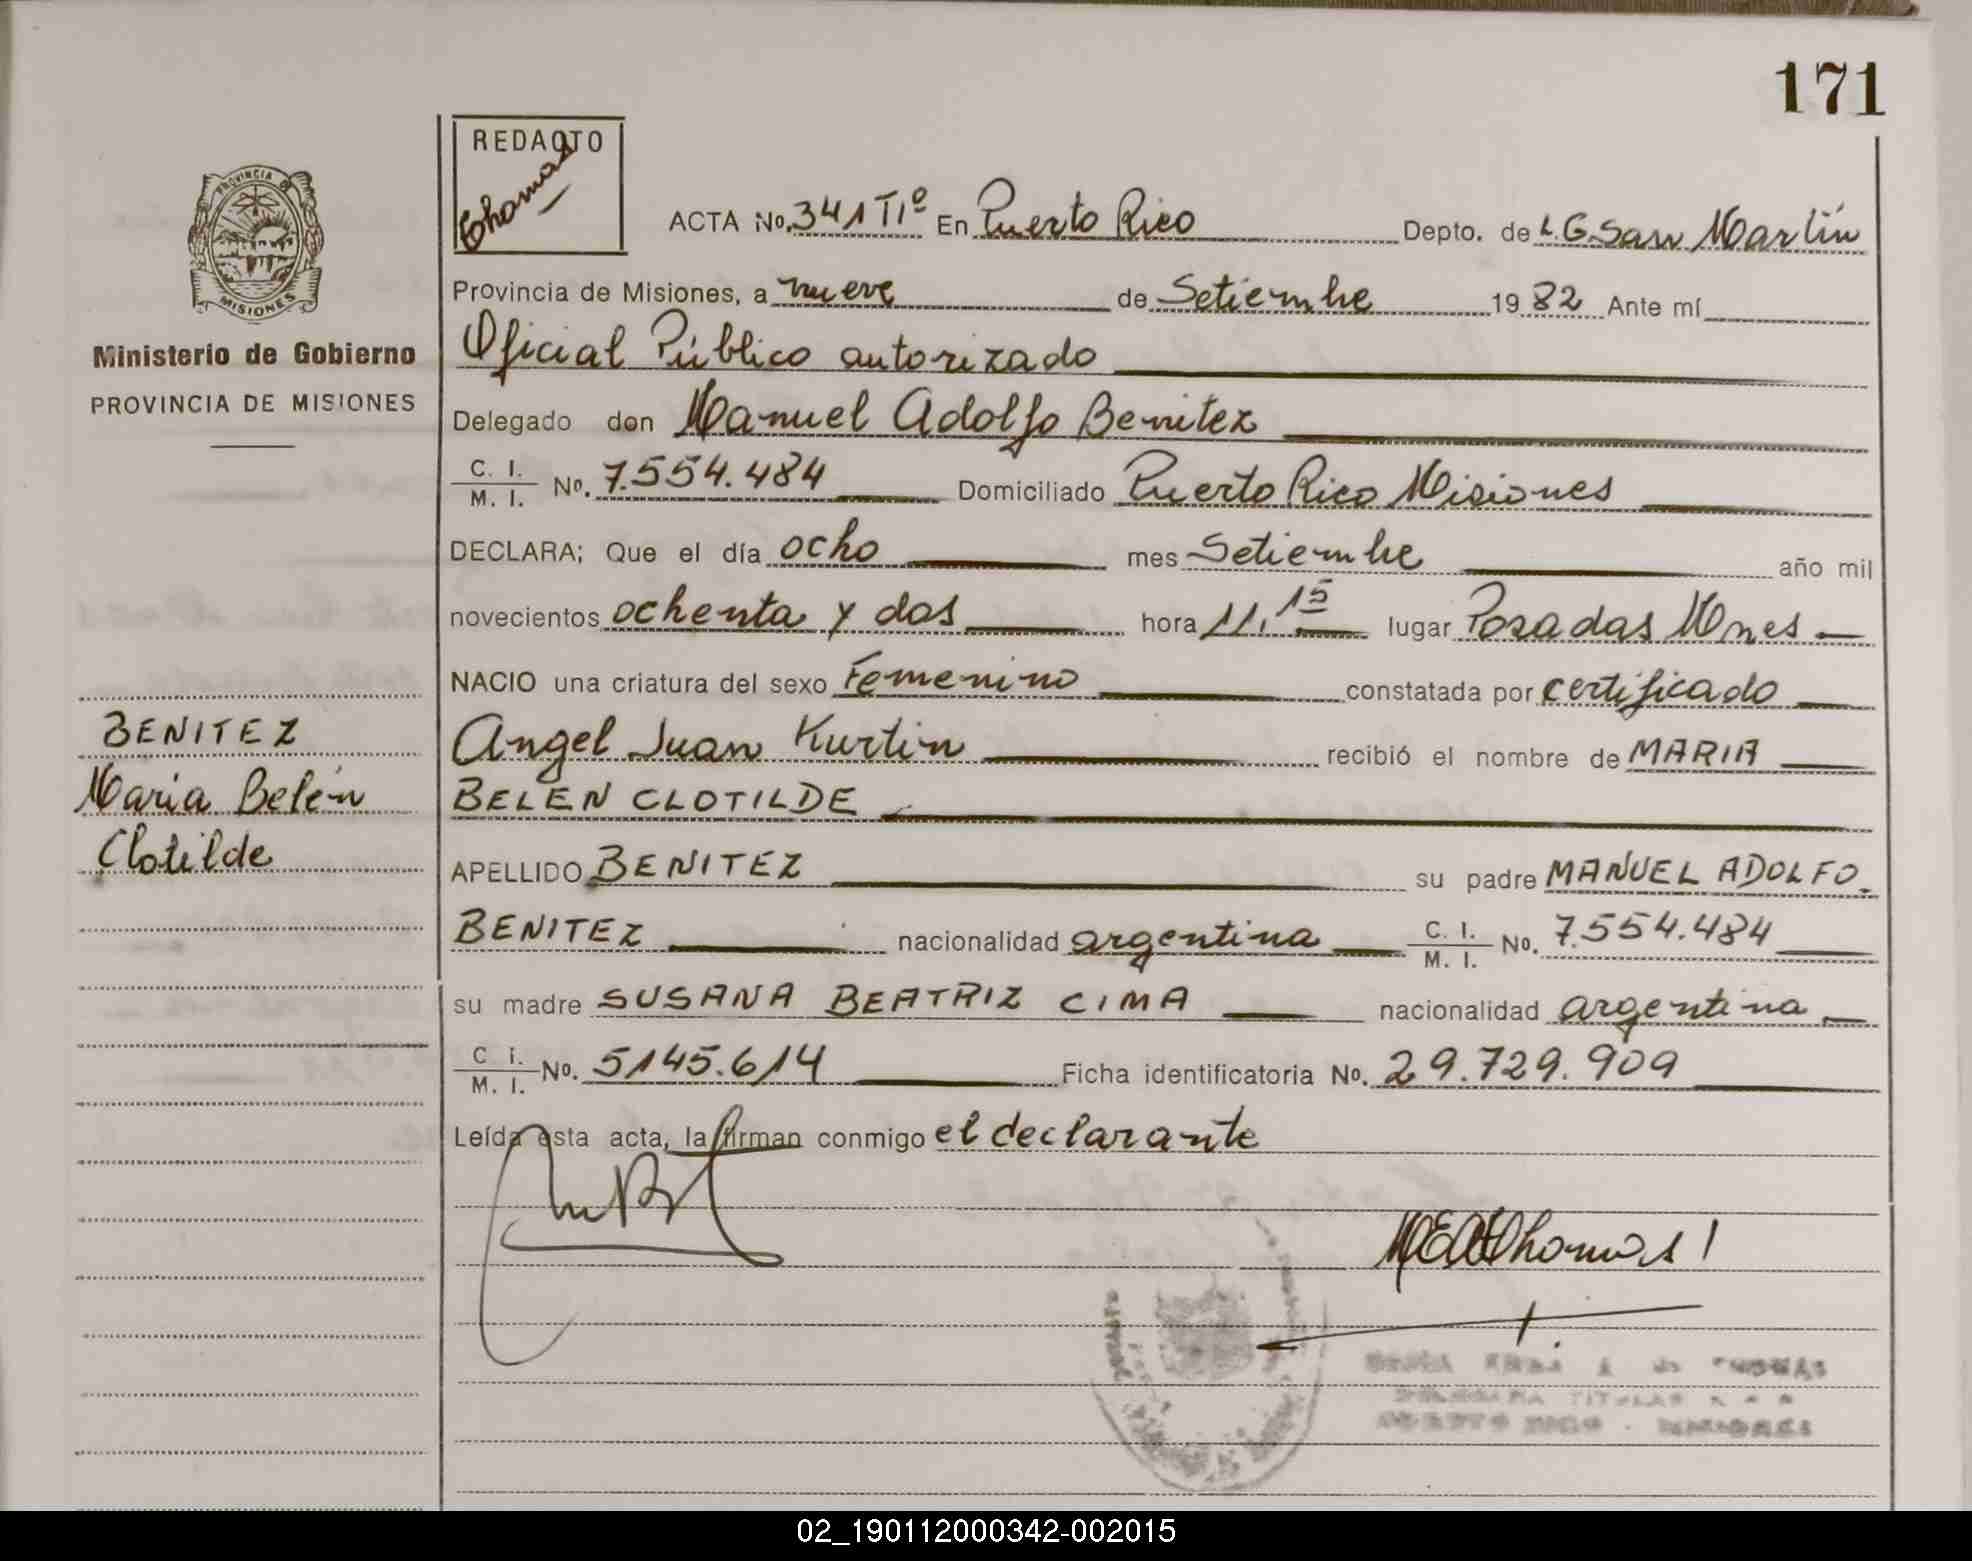 171
REDACTO
Thomas
PROVINCIA DE
MISIONES
Ministerio de Gobierno
PROVINCIA DE MISIONES
ACTA No. 341 T1º En Puerto Rico Depto. de L.G. San Martín
Provincia de Misiones, a nueve de Setiembre 19 82 Ante mí
Oficial Público autorizado
Delegado don Manuel Adolfo Benitez
C. I.
M. I. No. 7.554.484 Domiciliado Puerto Rico Misiones
DECLARA; Que el día ocho mes Setiembre año mil
novecientos ochenta y dos hora 11.15 lugar Posadas Mnes
NACIO una criatura del sexo Femenino constatada por certificado
Angel Juan Kurtin recibió el nombre de MARIA
BELEN CLOTILDE
BENITEZ
Maria Belén
Clotilde
APELLIDO BENITEZ su padre MANUEL ADOLFO
BENITEZ nacionalidad argentina C. I.
M. I. No. 7.554.484
su madre SUSANA BEATRIZ CIMA nacionalidad argentina
C. I.
M. I. No. 5145.614 Ficha identificatoria No. 29.729.909
Leída esta acta, la firman conmigo el declarante
Thomas
TITULAR
PUERTO RICO - MISIONES
02_190112000342-002015